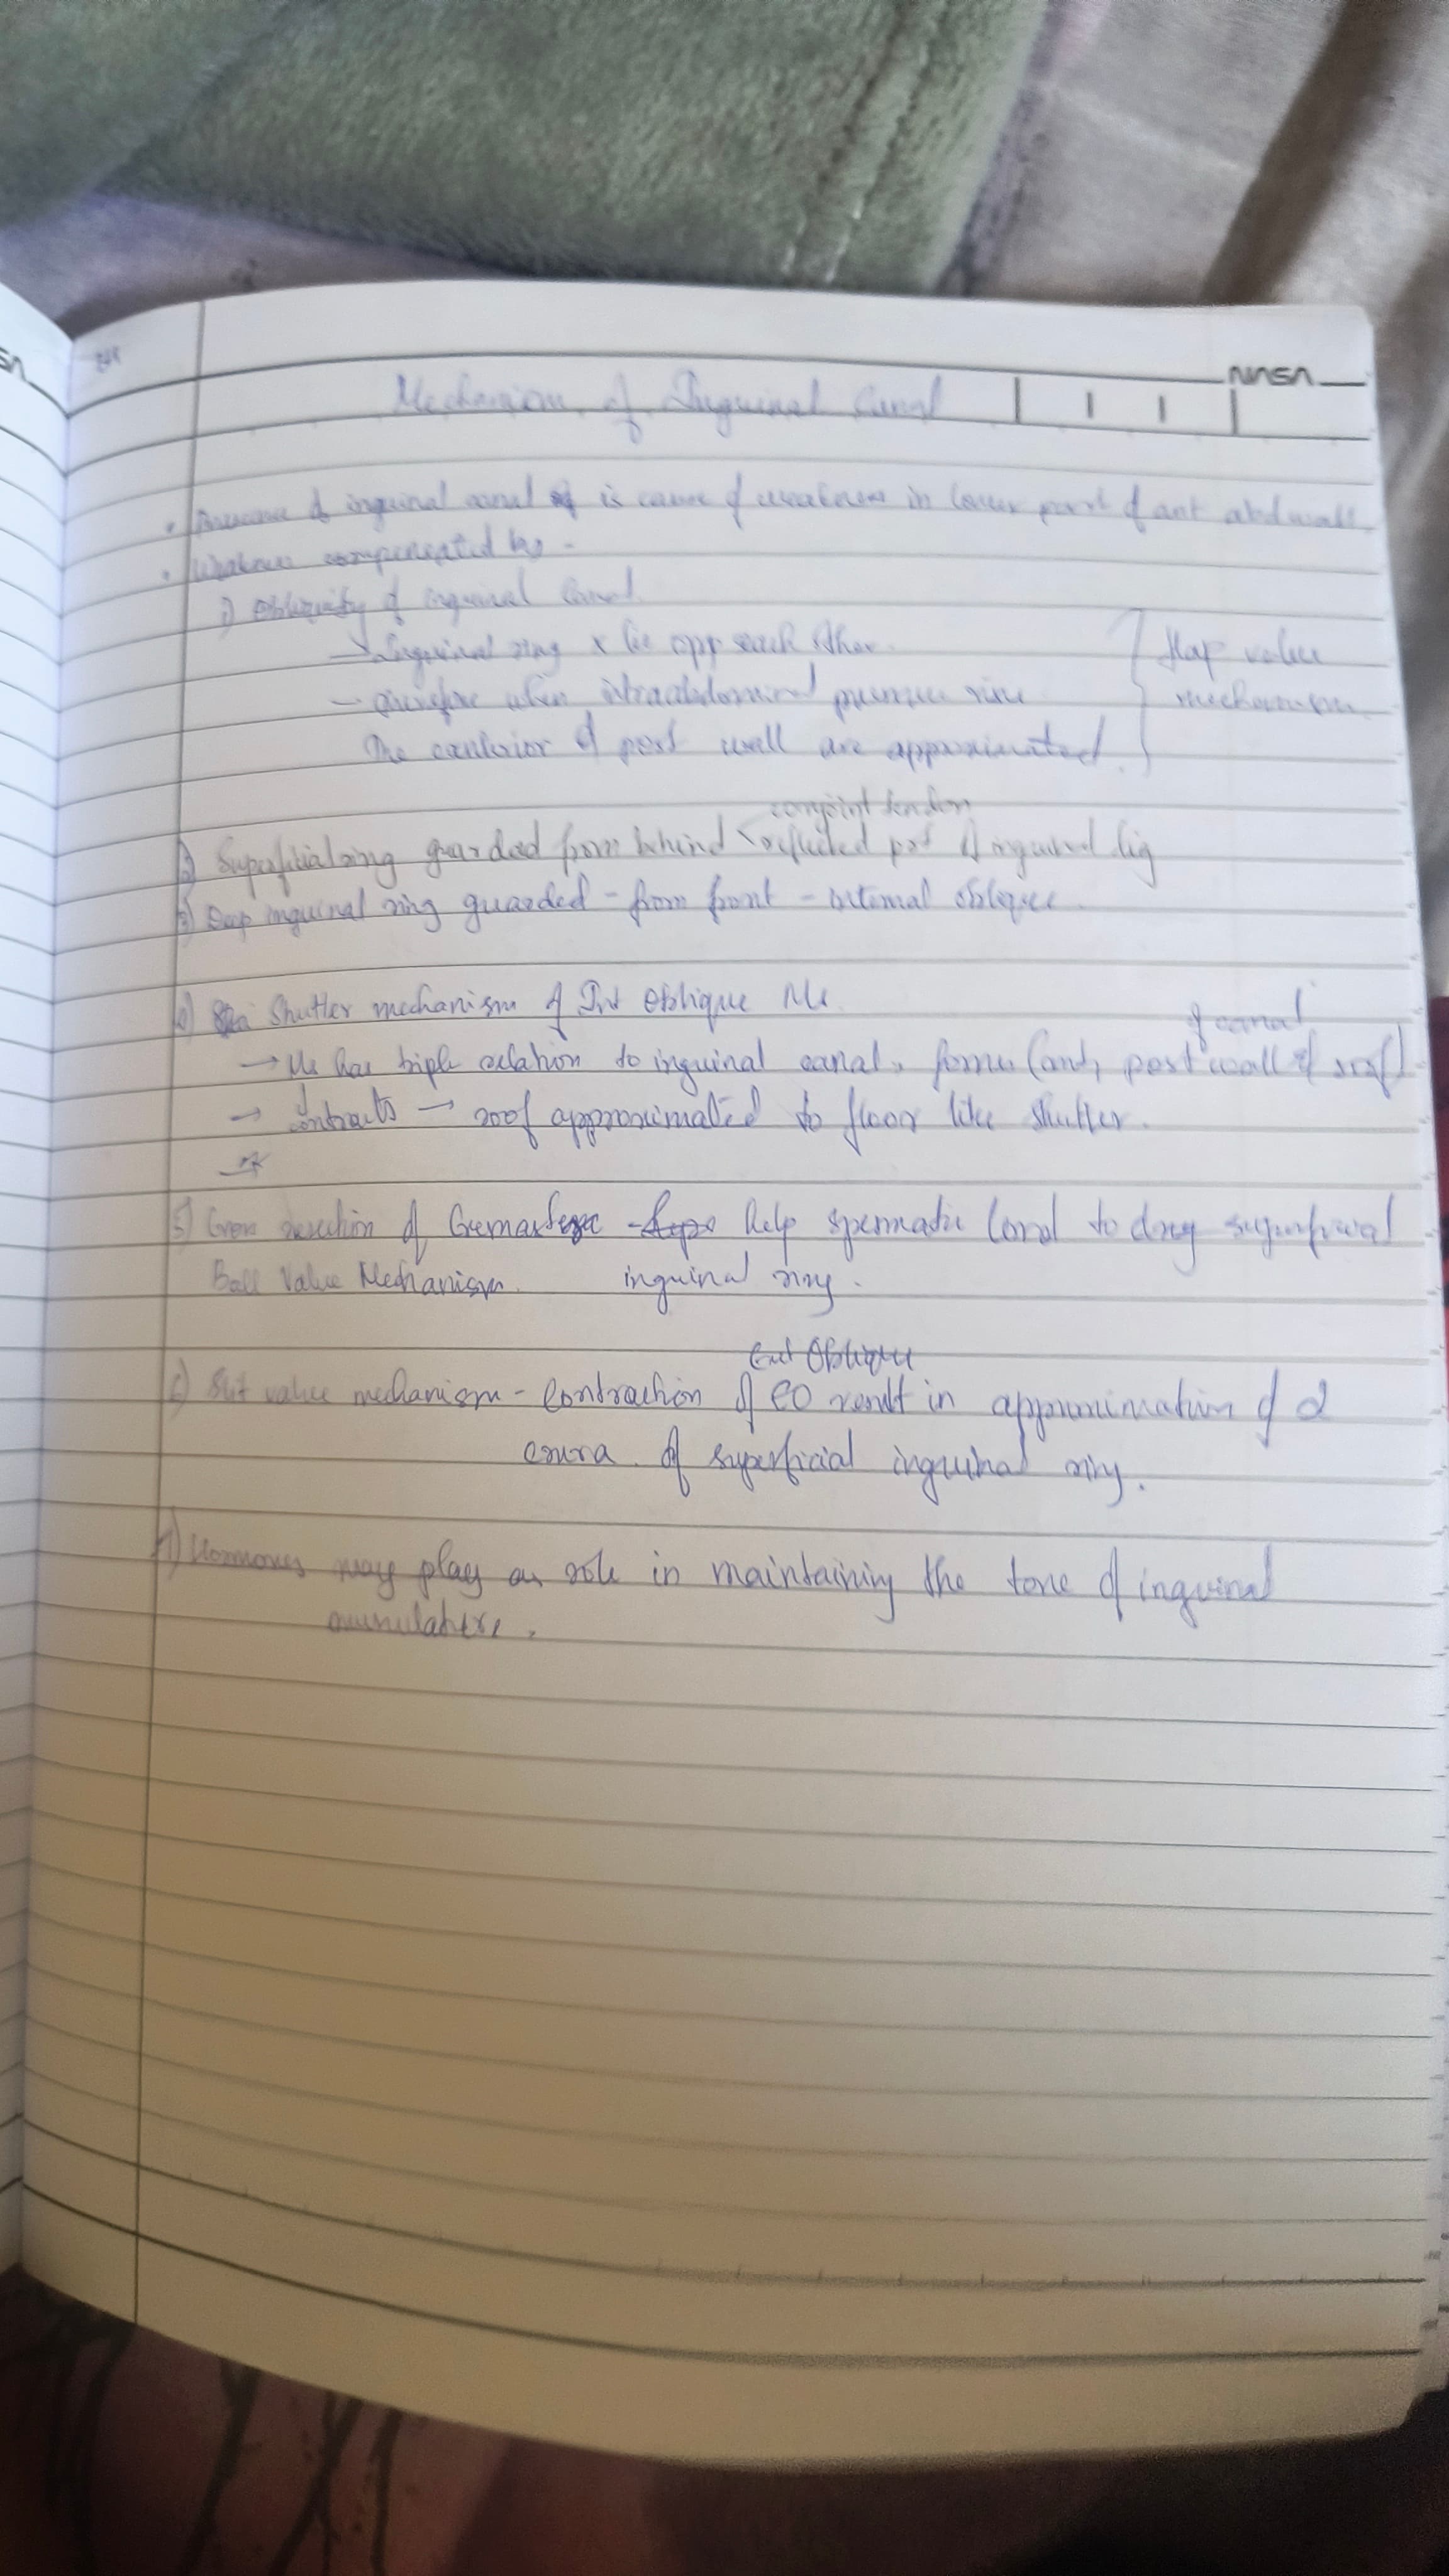 NASA
Mechanism of Inguinal Canal
• Presence of inguinal canal is cause of weakness in lower part of ant abd wall
• Weakness compensated by -
1) Obliquity of inguinal Canal
→ Inguinal ring x lie opp each other.
- therefore when intraabdominal pressure rise
The of post wall are approximated.
flap value
mechanism
conjoint tendon
2) Superficial ring guarded from behind < reflected part of inguinal lig
3) Deep inguinal ring guarded - from front - internal oblique.
4) Shutter mechanism of Int Oblique Ms.
of canal
→ Ms has triple relation to inguinal canal, forms (ant, post wall & roof)
→ contracts → roof approximated to floor like shutter.
5) of help spermatic Cord to superficial
Ball Value Mechanism. inguinal ring.
Ext Oblique
6) Slit value mechanism - Contraction of EO result in approximation of 2
crura of superficial inguinal ring.
7) Hormones may play a role in maintaining the tone of inguinal